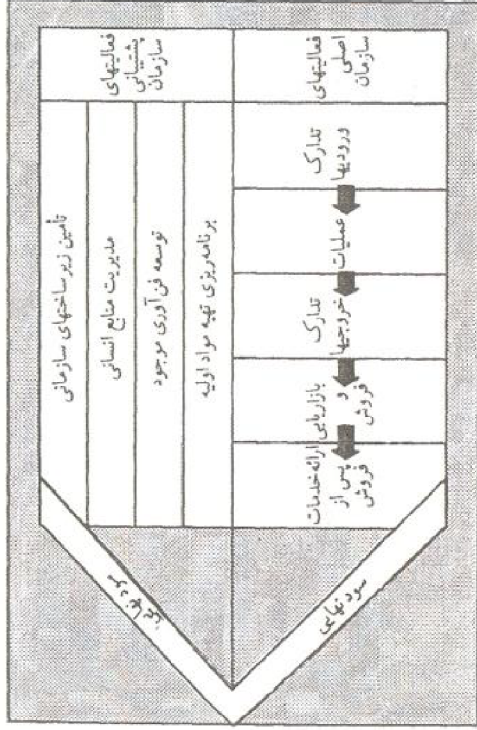 فعالیتهای
پشتیبانی
سازمان
تأمین زیرساختهای سازمانی
مدیریت منابع انسانی
توسعه فن‌آوری موجود
برنامه‌ریزی تهیه مواد اولیه
فعالیتهای
اصلی
سازمان
تدارک
ورودیها
عملیات
تدارک
خروجیها
بازاریابی
و
فروش
ارائه خدمات
پس از
فروش
سود نهایی
سود نهایی